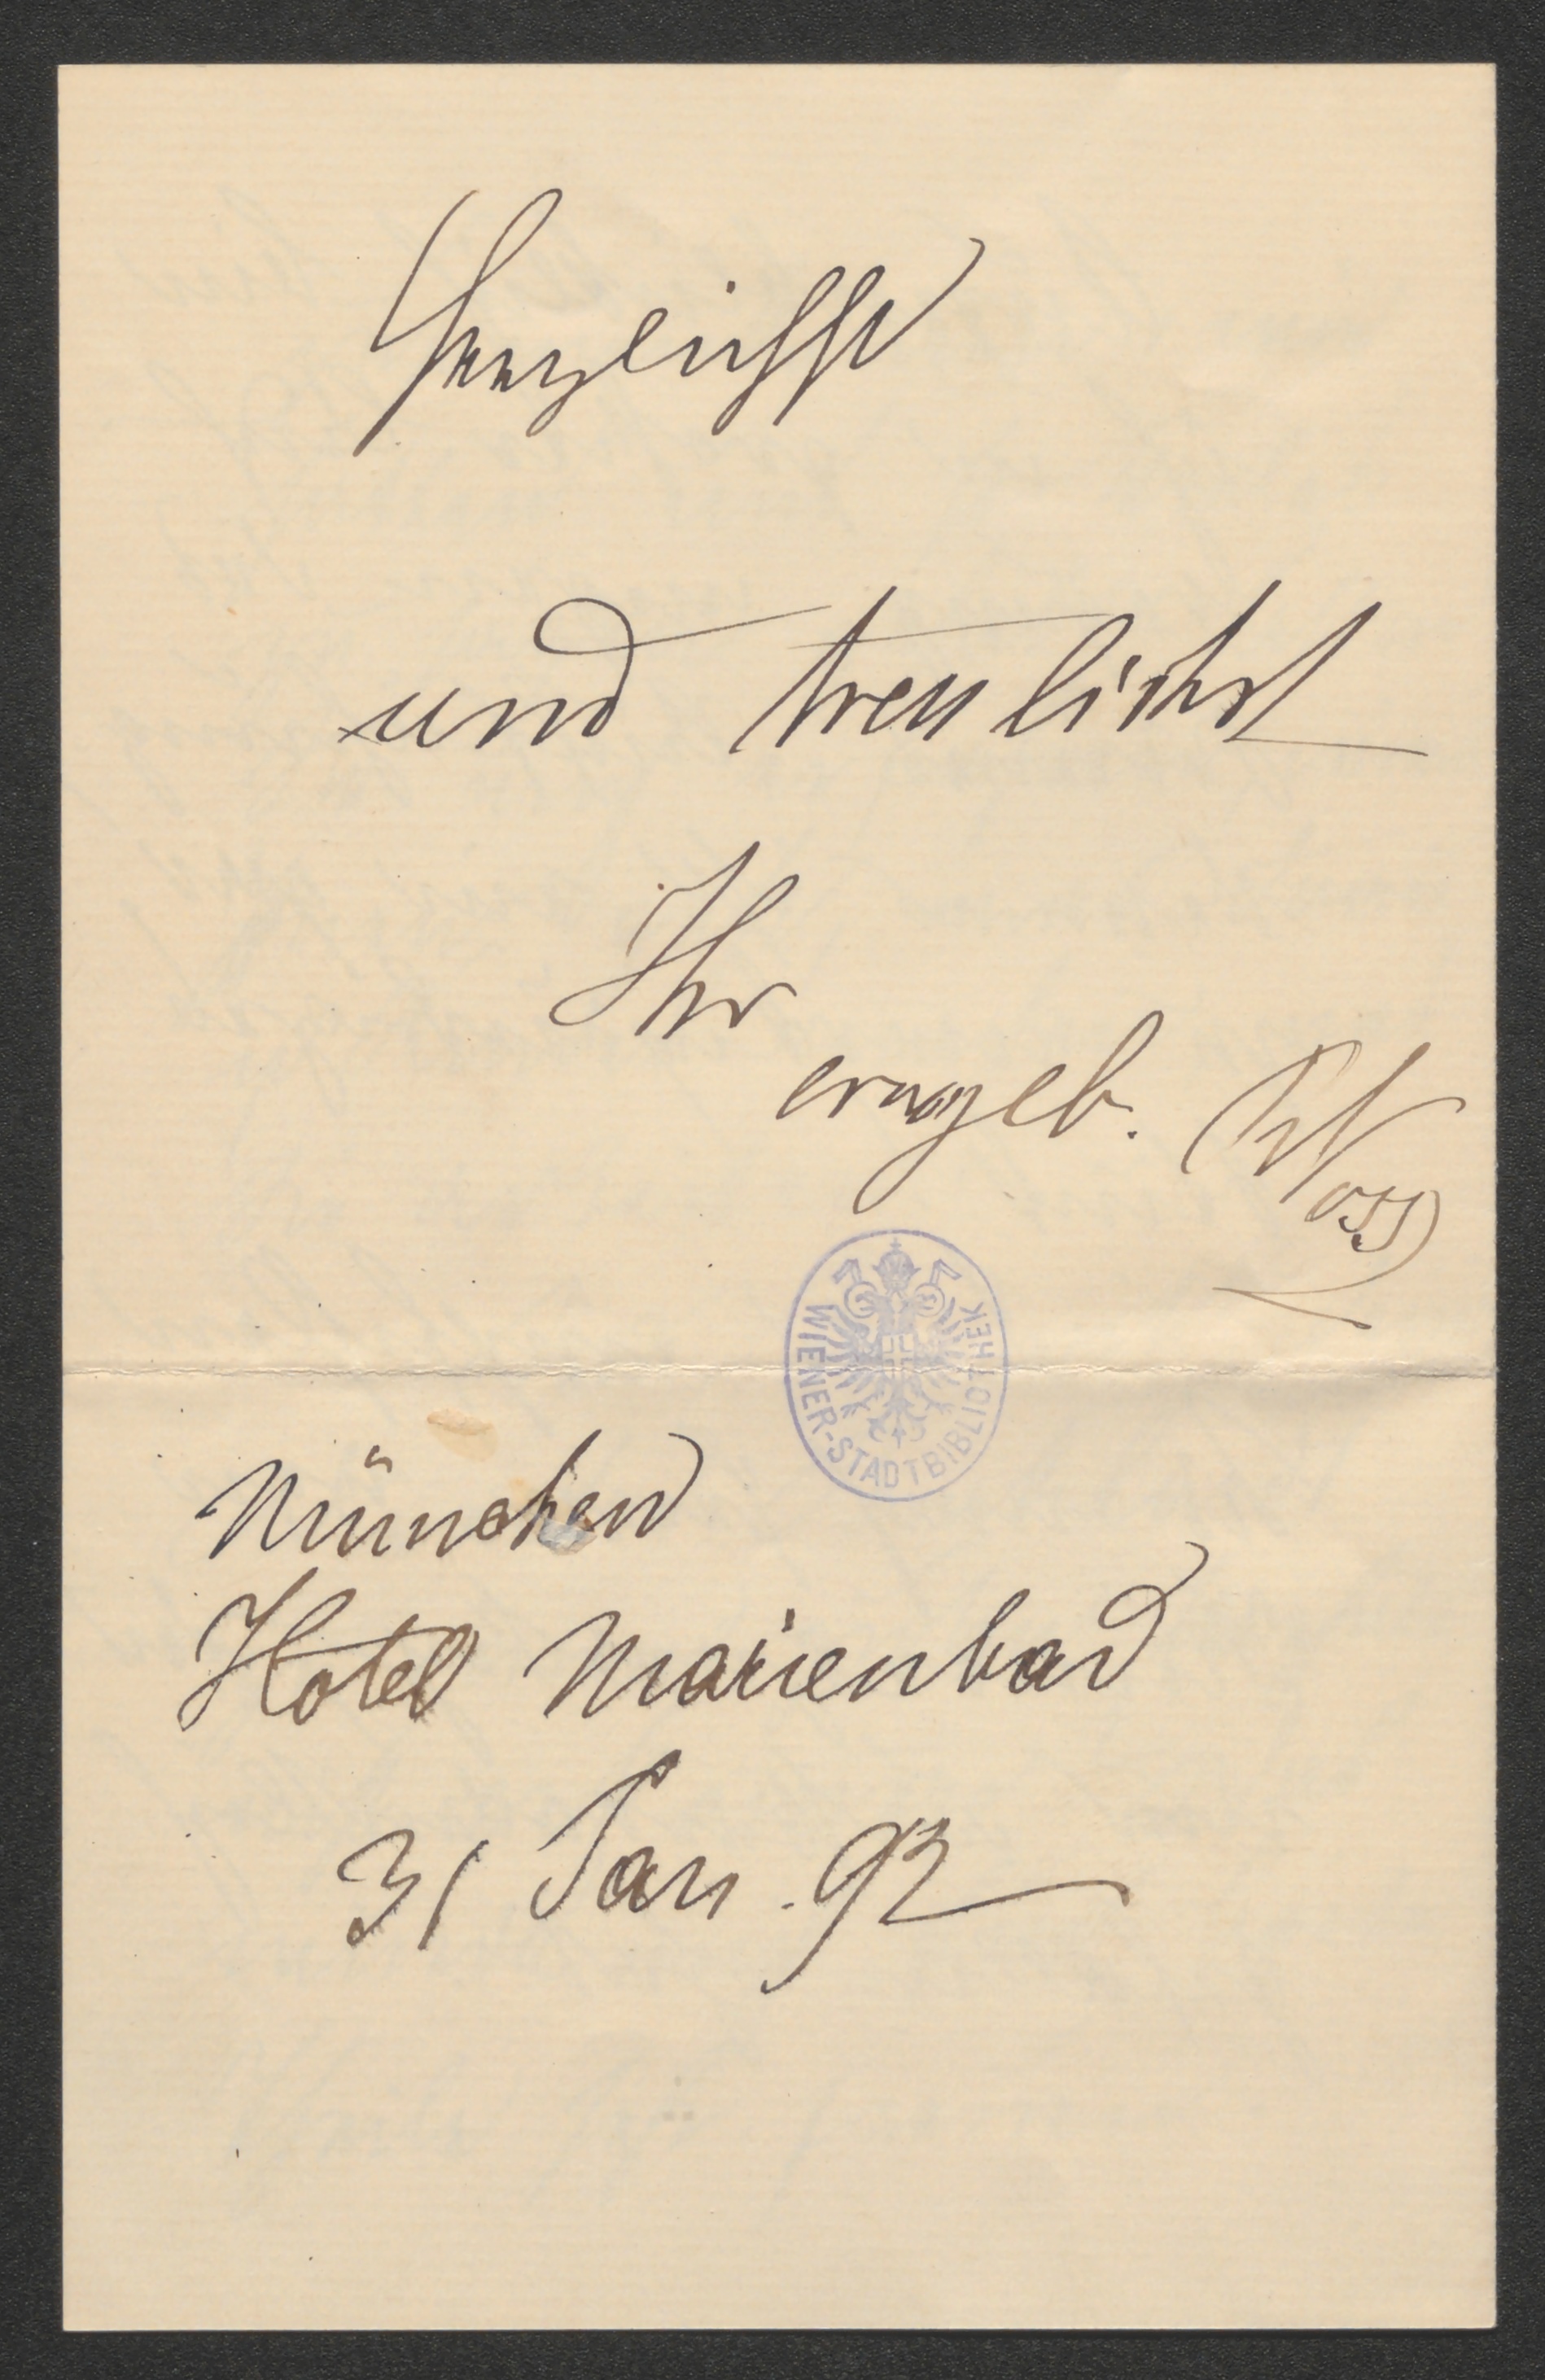 Herzlichst
und treulichst
Ihr
ergeb. Voss
WIENER-STADTBIBLIOTHEK
München
Hotel Marienbad
31 Jan. 92